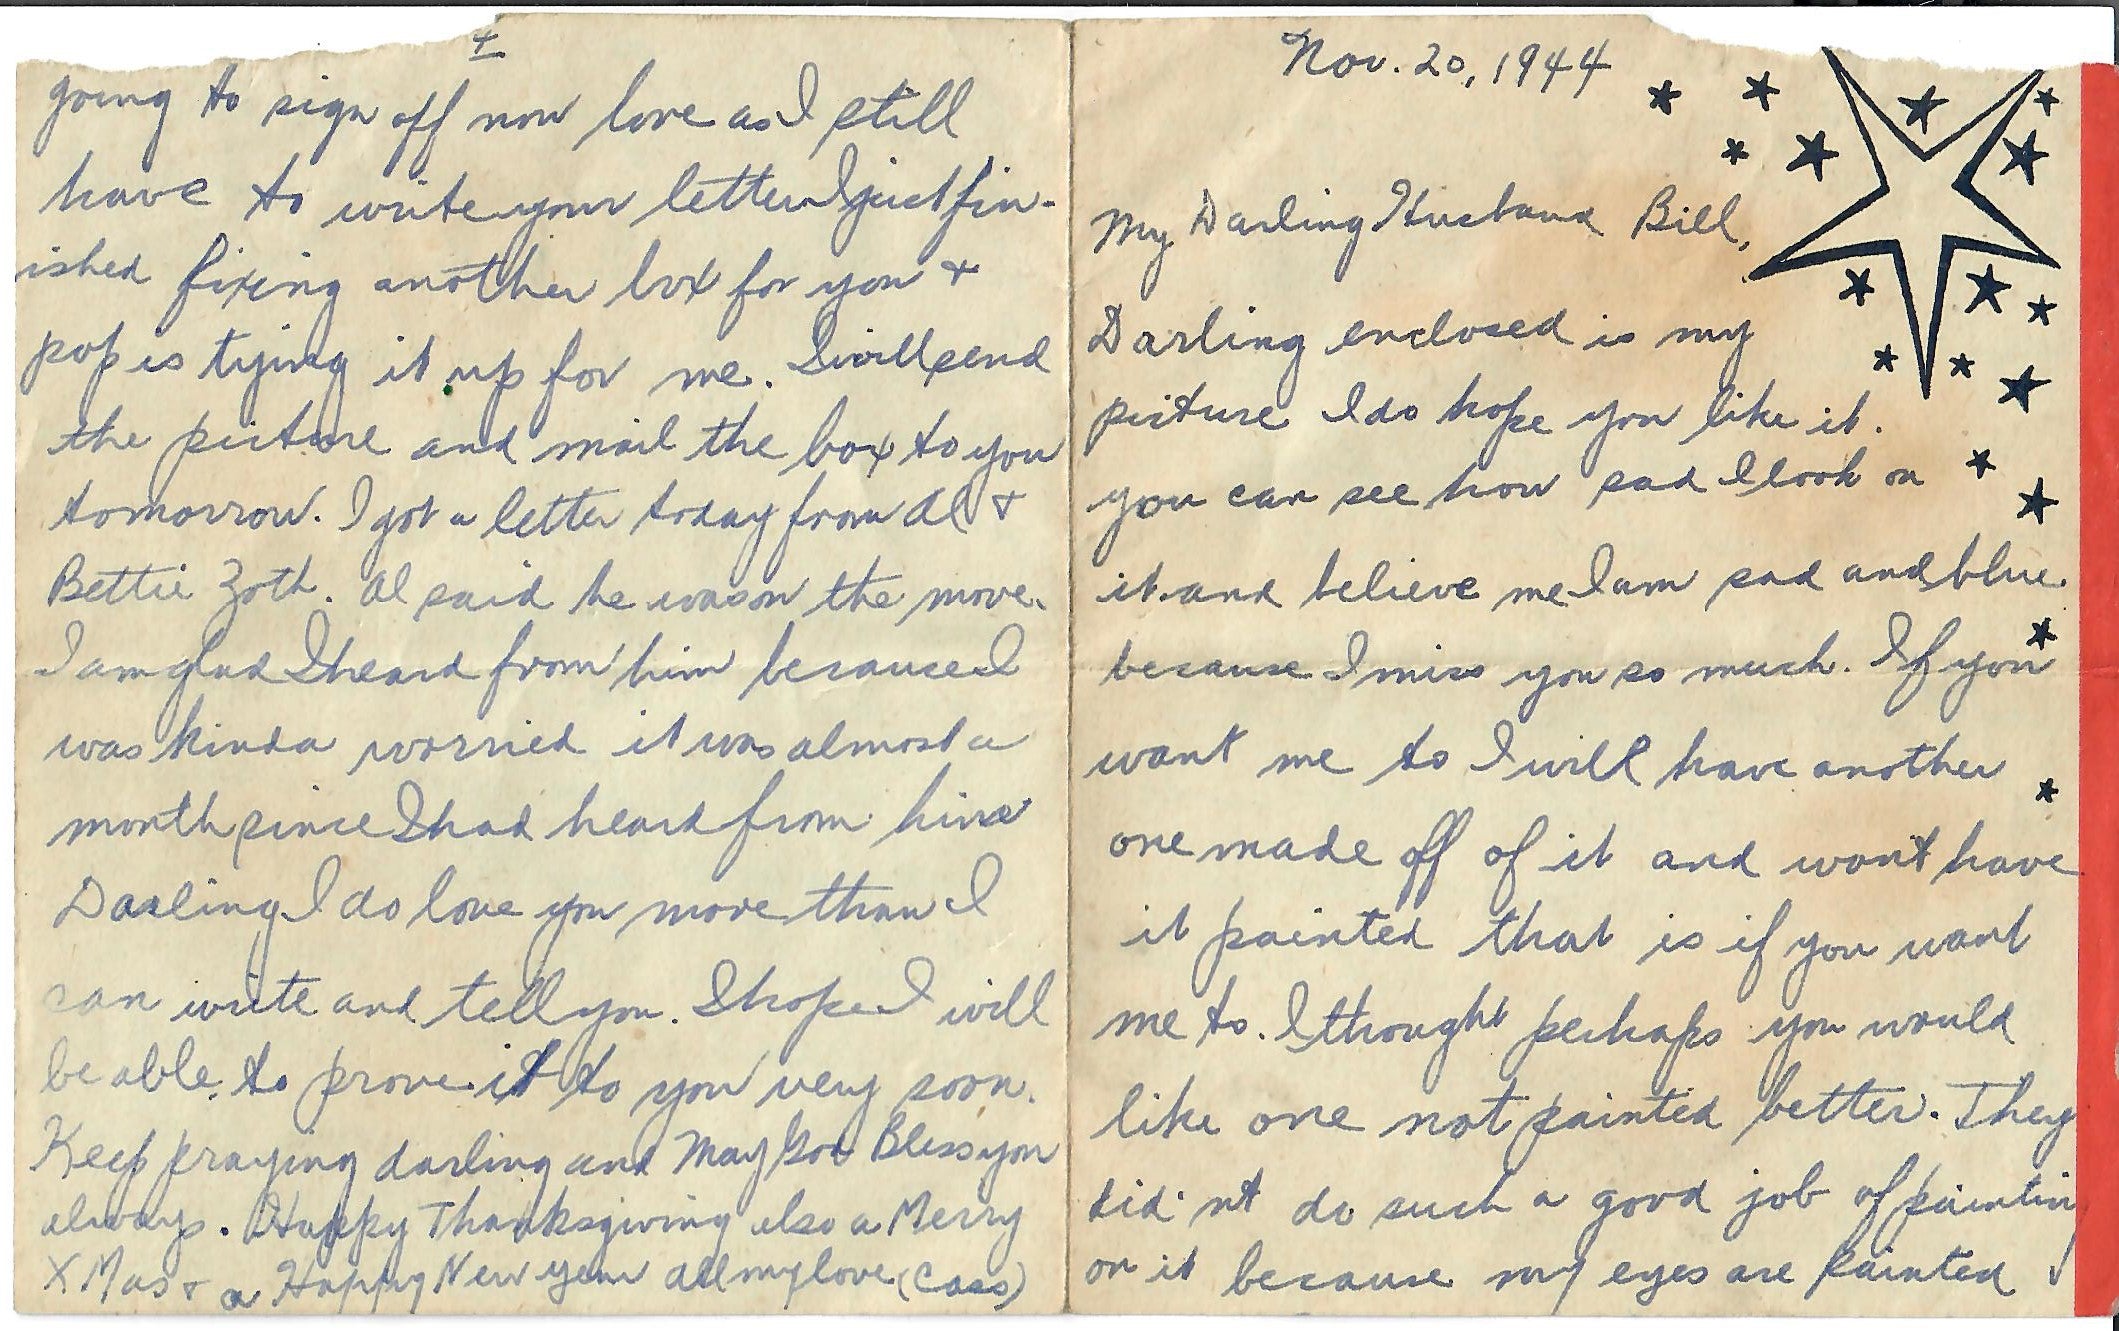 Nov. 20, 1944
My Darling Husband Bill,
Darling enclosed is my
picture I do hope you like it.
you can see how sad I look on
it and believe me I am sad and blue
because I miss you so much. If you
want me to I will have another
one made off of it and wont have
it painted that is if you want
me to. I thought perhaps you would
like one not painted better. They
did'nt do such a good job of paintin
on it because my eyes are painted
4
going to sign off now love as I still
have to write your letter I just fin-
ished fixing another box for you +
pop is tying it up for me. I will send
the picture and mail the box to you
tomorrow. I got a letter today from Al +
Bettie Zoth. Al said he was on the move.
I am glad I heard from him because I
was kinda worried it was almost a
month since I had heard from him
Darling I do love you more than I
can write and tell you. I hope I will
be able to prove it to you very soon.
Keep praying darling and May God Bless you
always. Happy Thanksgiving also a Merry
X Mas + a Happy New year all my love (Cass)